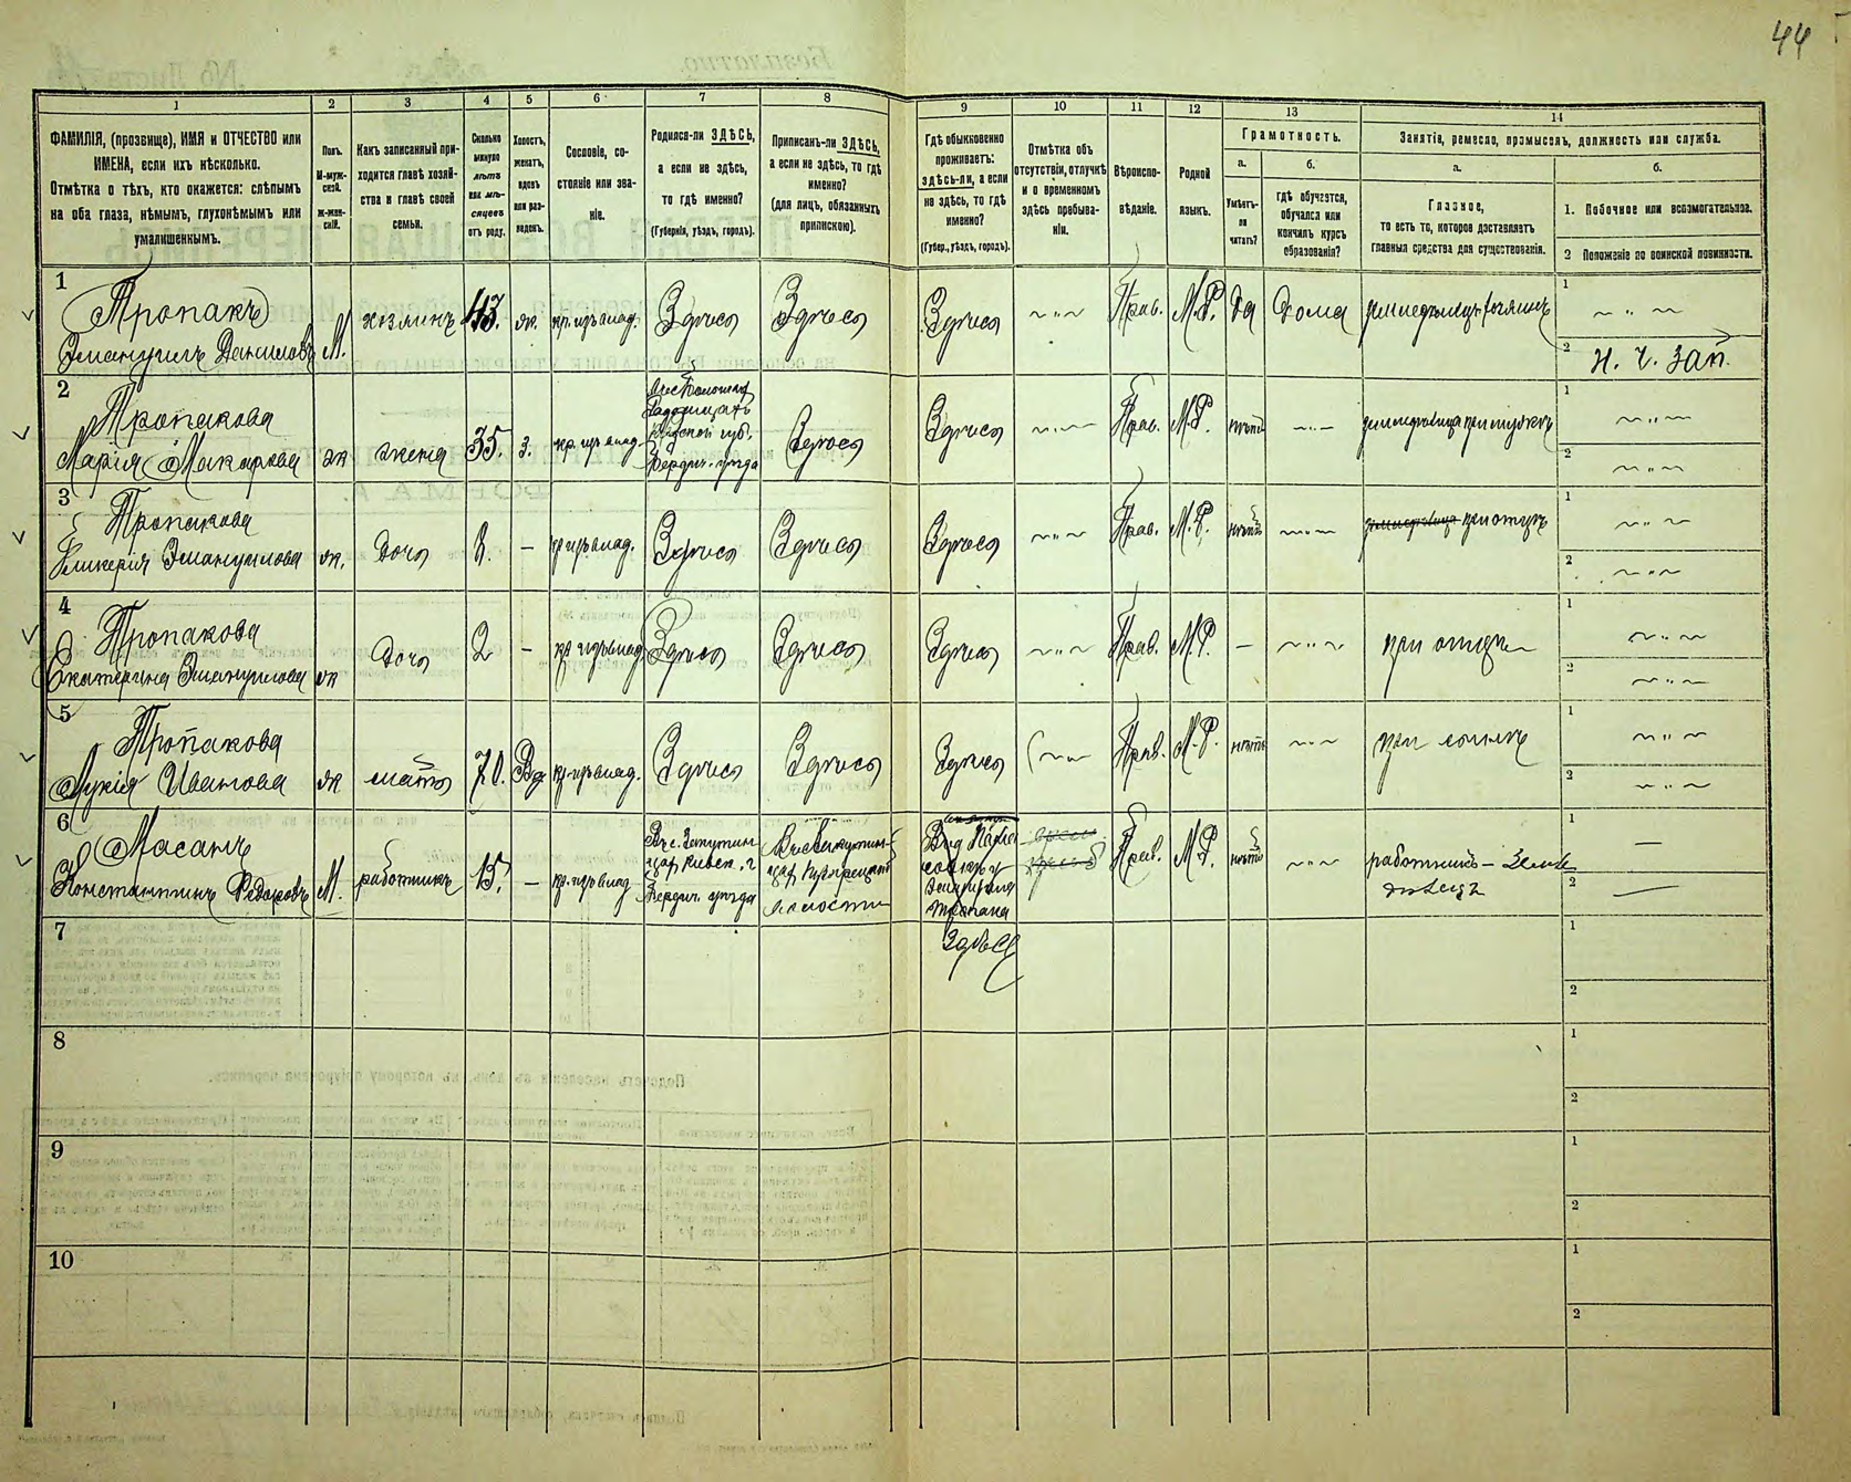 44
1 2 3 4 5 6 7 8 9 10 11 12 13 14
ФАМИЛІЯ, (прозвище), ИМЯ и ОТЧЕСТВО или
ИМЕНА, если ихъ нѣсколько.
Отмѣтка о тѣхъ, кто окажется: слѣпымъ
на оба глаза, нѣмымъ, глухонѣмымъ или
умалишеннымъ.
Полъ.
М-муж-
ской.
Ж-жен-
скій.
Какъ записанный при-
ходится главѣ хозяй-
ства и главѣ своей
семьи.
Сколько
минуло
лѣтъ
или мѣ-
сяцевъ
отъ роду.
Холостъ,
женатъ,
вдовъ
или раз-
веденъ.
Сословіе, со-
стояніе или зва-
ніе.
Родился-ли ЗДѢСЬ,
а если не здѣсь,
то гдѣ именно?
(Губернія, уѣздъ, городъ).
Приписанъ-ли ЗДѢСЬ,
а если не здѣсь, то гдѣ
именно?
(для лицъ, обязанныхъ
припискою).
Гдѣ обыкновенно
проживаетъ:
здѣсь-ли, а если
не здѣсь, то гдѣ
именно?
(Губер., уѣздъ, городъ).
Отмѣтка объ
отсутствіи, отлучкѣ
и о временномъ
здѣсь пребыва-
ніи.
Вѣроиспо-
вѣданіе.
Родной
языкъ.
Грамотность.
а.
Умѣетъ-
ли
читать?
б.
гдѣ обучается,
обучался или
кончилъ курсъ
образованія?
Занятія, ремесло, промыселъ, должность или служба.
а.
Главное,
то есть то, которое доставляетъ
главныя средства для существованія.
б.
1. Побочное или вспомогательное.
2 Положеніе по воинской повинности.
1
Тропакъ
Эмануилъ Даниловъ М. хозяинъ 43. ж. кр. изъ влад. Здѣсь Здѣсь Здѣсь Прав. М.Р. да дома 1
2 н. ч. зап.
2
Тропакова
Марія Макарова ж жена 35. з. кр. изъ влад. Здѣсь Здѣсь Прав. М.Р. нѣтъ 1
Бердич. уѣзда 2
3
Тропакова
Гликерія Эмануилова ж. дочь 8. — кр. изъ влад. Здѣсь Здѣсь Здѣсь Прав. М.Р. нѣтъ при отцѣ 1
2
4
Тропакова
Екатерина Эмануилова ж дочь 2 — кр. изъ влад. Здѣсь Здѣсь Здѣсь Прав. М.Р. — при отцѣ 1
2
5
Тропакова
Лукія Иванова ж мать 70. Вд кр. изъ влад. Здѣсь Здѣсь Здѣсь Прав. М.Р. нѣтъ при сынѣ 1
2
6
Масанъ
Константинъ Федоровъ М. работникъ 15. — кр. изъ влад Прав. М.Р. нѣтъ работникъ – 1 —
Бердич. уѣзда волости 2 —
Здѣсь
7 1
2
8 1
2
9 1
2
10 1
2